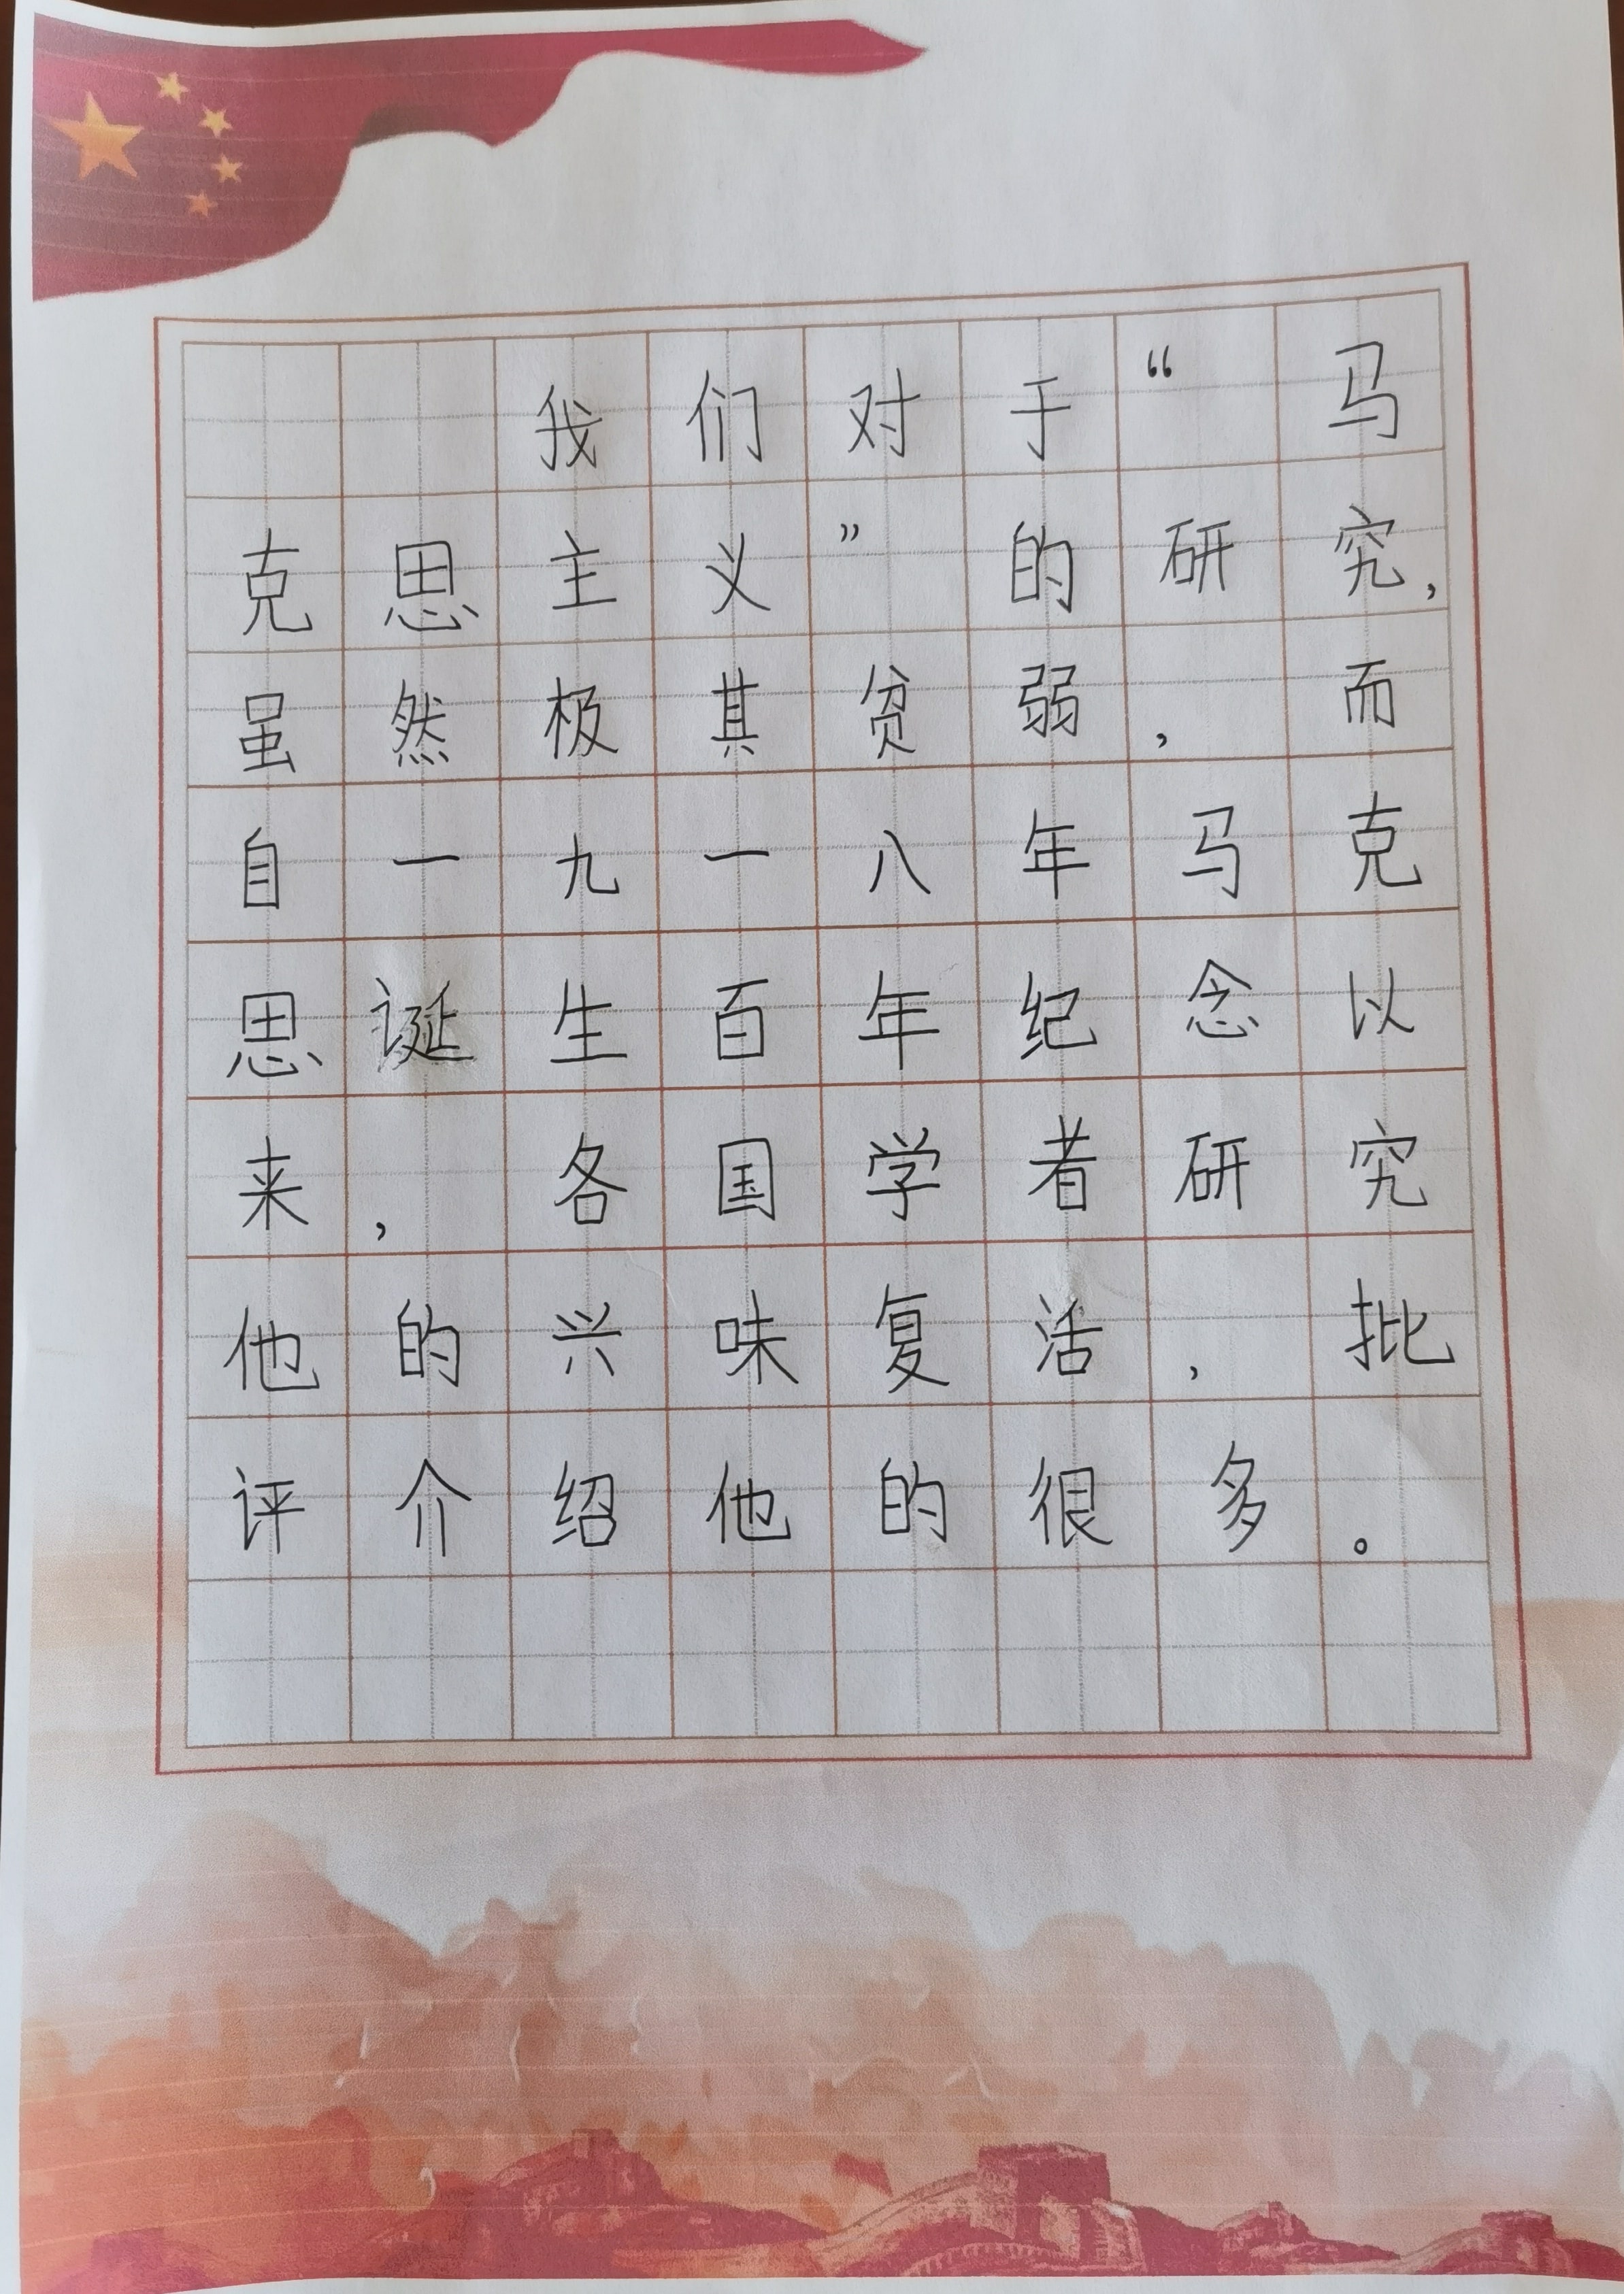 我们对于“马
克思主义”的研究，
虽然极其贫弱，而
自一九一八年马克
思诞生百年纪念以
来，各国学者研究
他的兴味复活，批
评介绍他的很多。